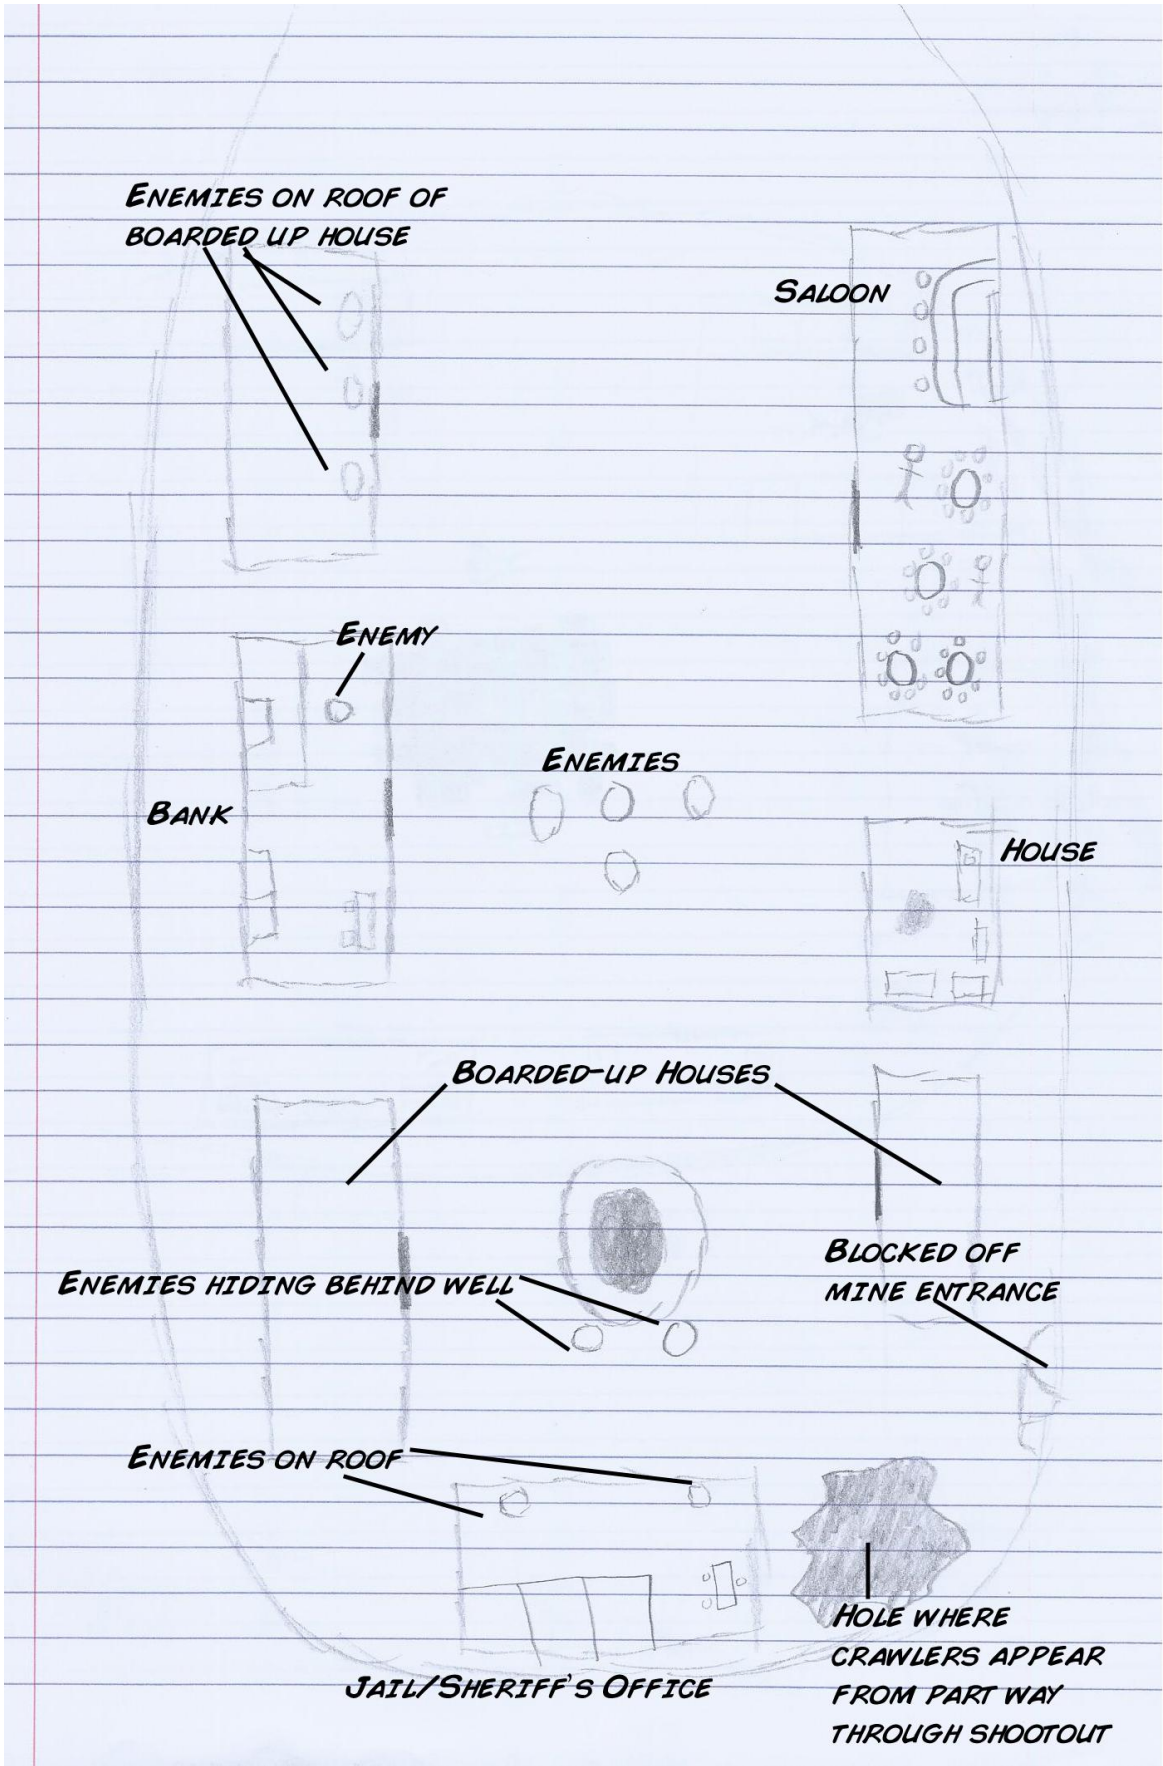 Enemies on roof of
boarded up house
Saloon
Enemy
Enemies
Bank
House
Boarded-up Houses
Blocked off
mine entrance
Enemies hiding behind well
Enemies on roof
Hole where
crawlers appear
from part way
through shootout
Jail/Sheriff's Office